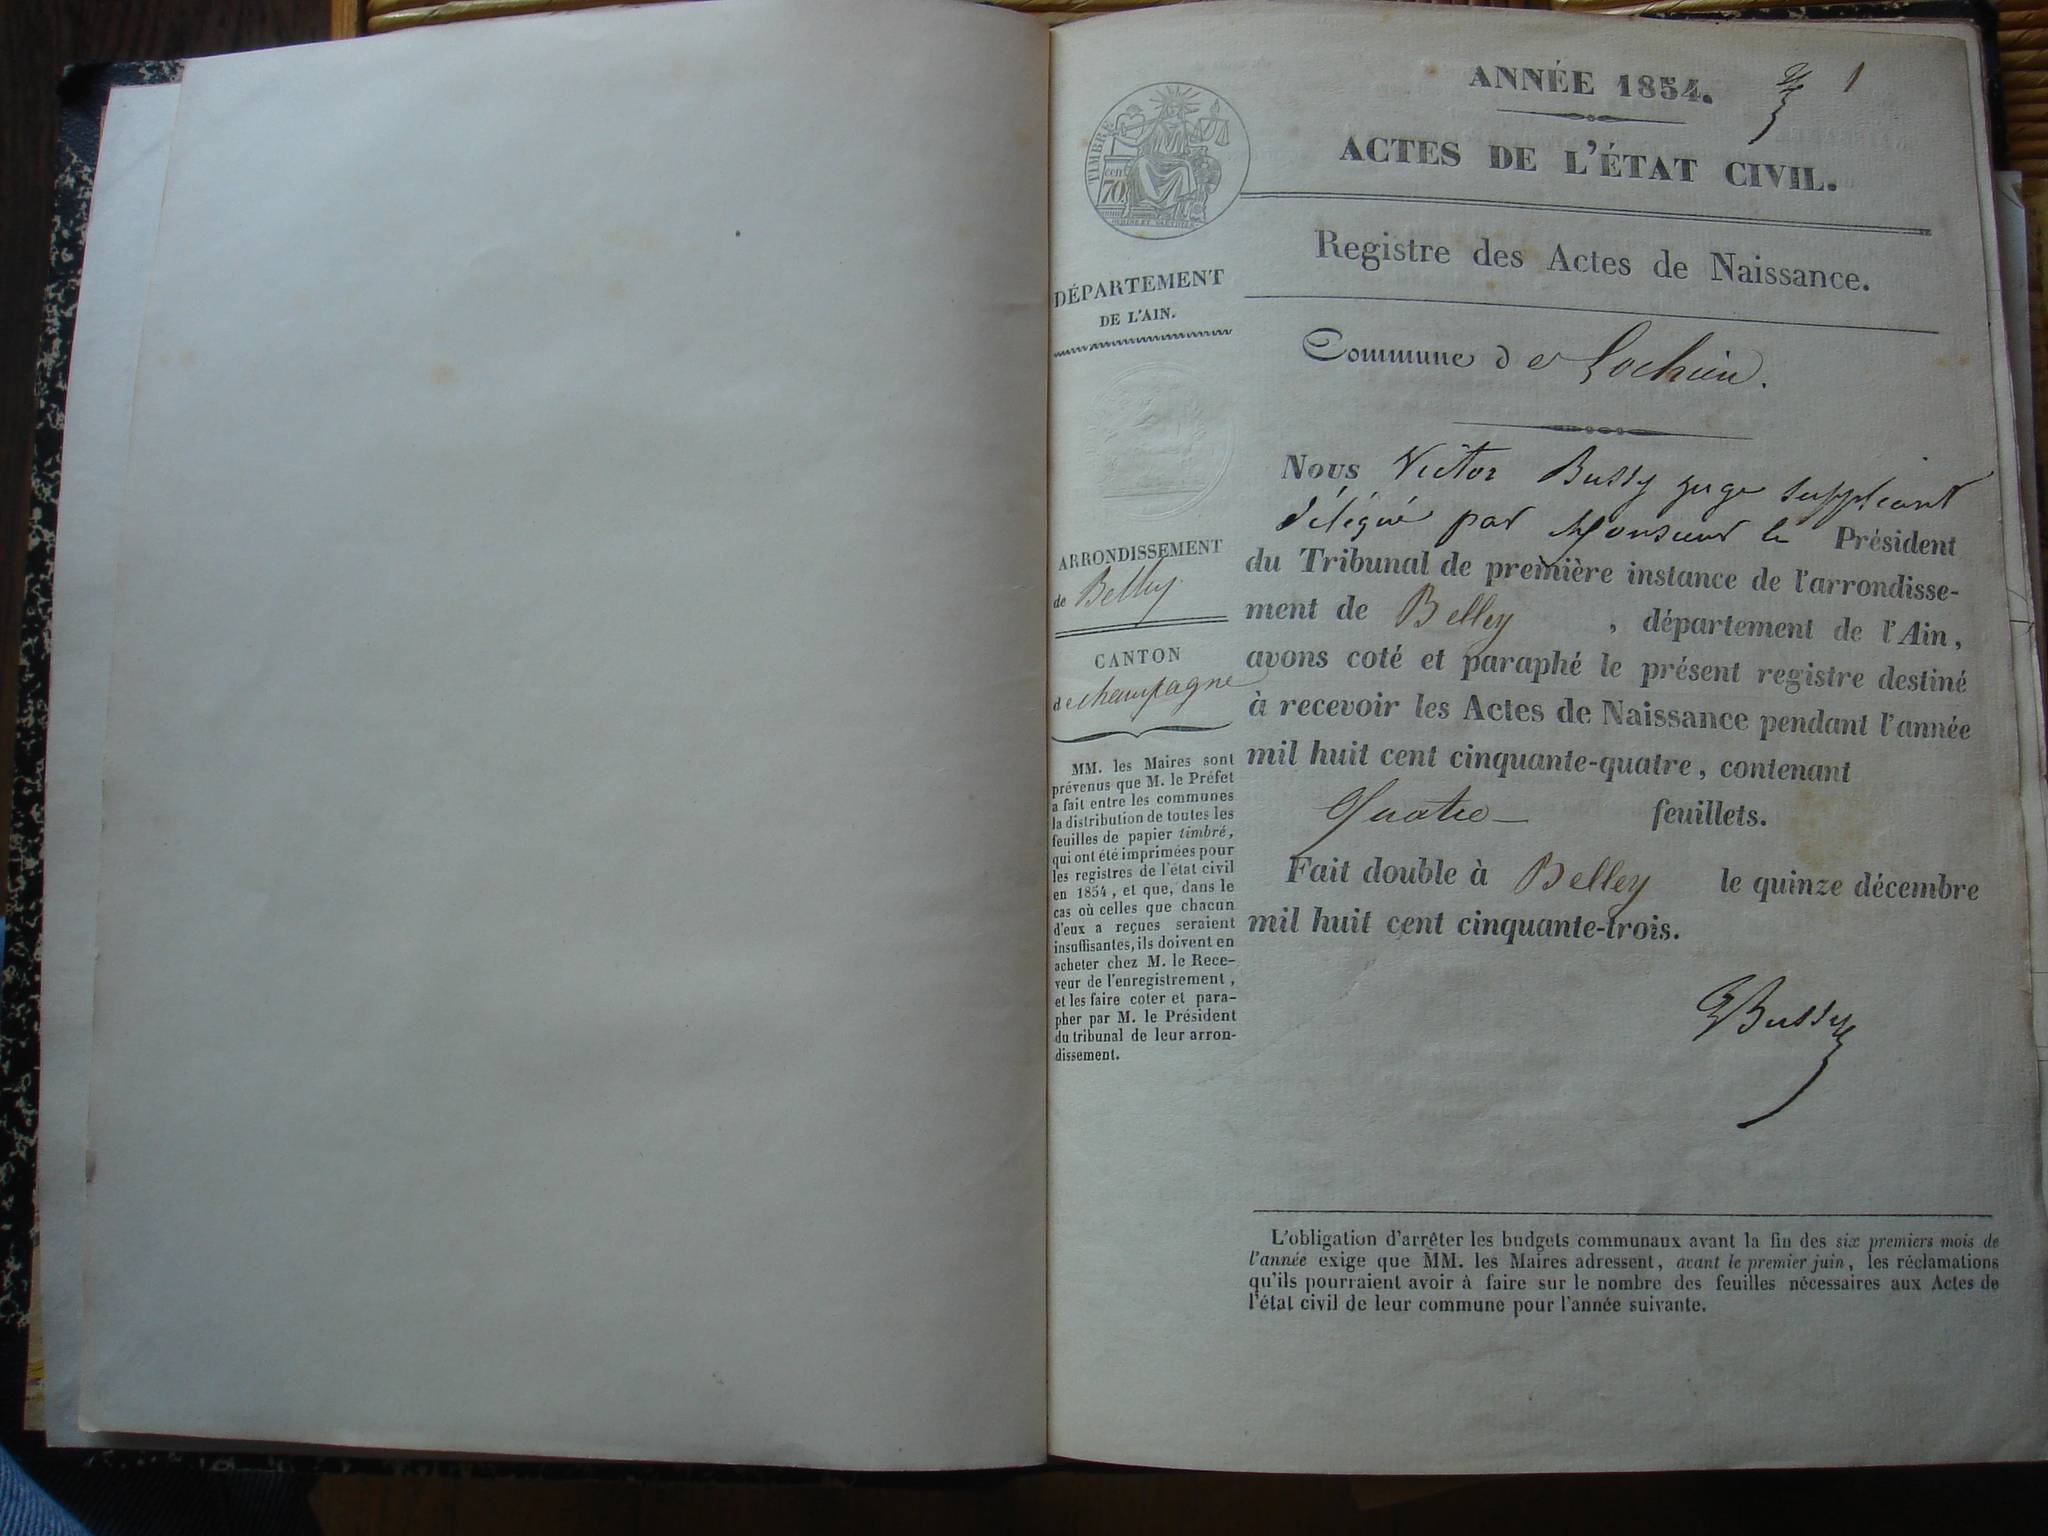 ANNÉE 1854.
1
ACTES DE L'ÉTAT CIVIL.
TIMBRE
cen
70
Registre des Actes de Naissance.
DÉPARTEMENT
DE L'AIN.
Commune de Lochieu.
ARRONDISSEMENT
de Belley.
CANTON
de Champagne
MM. les Maires sont
prévenus que M. le Préfet
a fait entre les communes
la distribution de toutes les
feuilles de papier timbré,
qui ont été imprimées pour
les registres de l'état civil
en 1854, et que, dans le
cas où celles que chacun
d'eux a reçues seraient
insuffisantes, ils doivent en
acheter chez M. le Rece-
veur de l'enregistrement,
et les faire coter et para-
pher par M. le Président
du tribunal de leur arron-
dissement.
Nous Victor Bussy juge suppléant
délégué par Monsieur le Président
du Tribunal de première instance de l'arrondisse-
ment de Belley, département de l'Ain,
avons coté et paraphé le présent registre destiné
à recevoir les Actes de Naissance pendant l'année
mil huit cent cinquante-quatre, contenant
Quatre feuillets.
Fait double à Belley le quinze décembre
mil huit cent cinquante-trois.
VBussy
L'obligation d'arrêter les budgets communaux avant la fin des six premiers mois de
l'année exige que MM. les Maires adressent, avant le premier juin, les réclamations
qu'ils pourraient avoir à faire sur le nombre des feuilles nécessaires aux Actes de
l'état civil de leur commune pour l'année suivante.